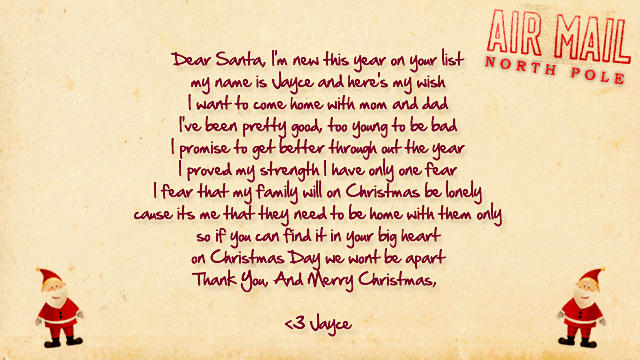 AIR MAIL
NORTH POLE
Dear Santa, I'm new this year on your list
my name is Jayce and here's my wish
I want to come home with mom and dad
I've been pretty good, too young to be bad
I promise to get better through out the year
I proved my strength I have only one fear
I fear that my family will on Christmas be lonely
cause its me that they need to be home with them only
so if you can find it in your big heart
on Christmas Day we wont be apart
Thank You, And Merry Christmas,
<3 Jayce